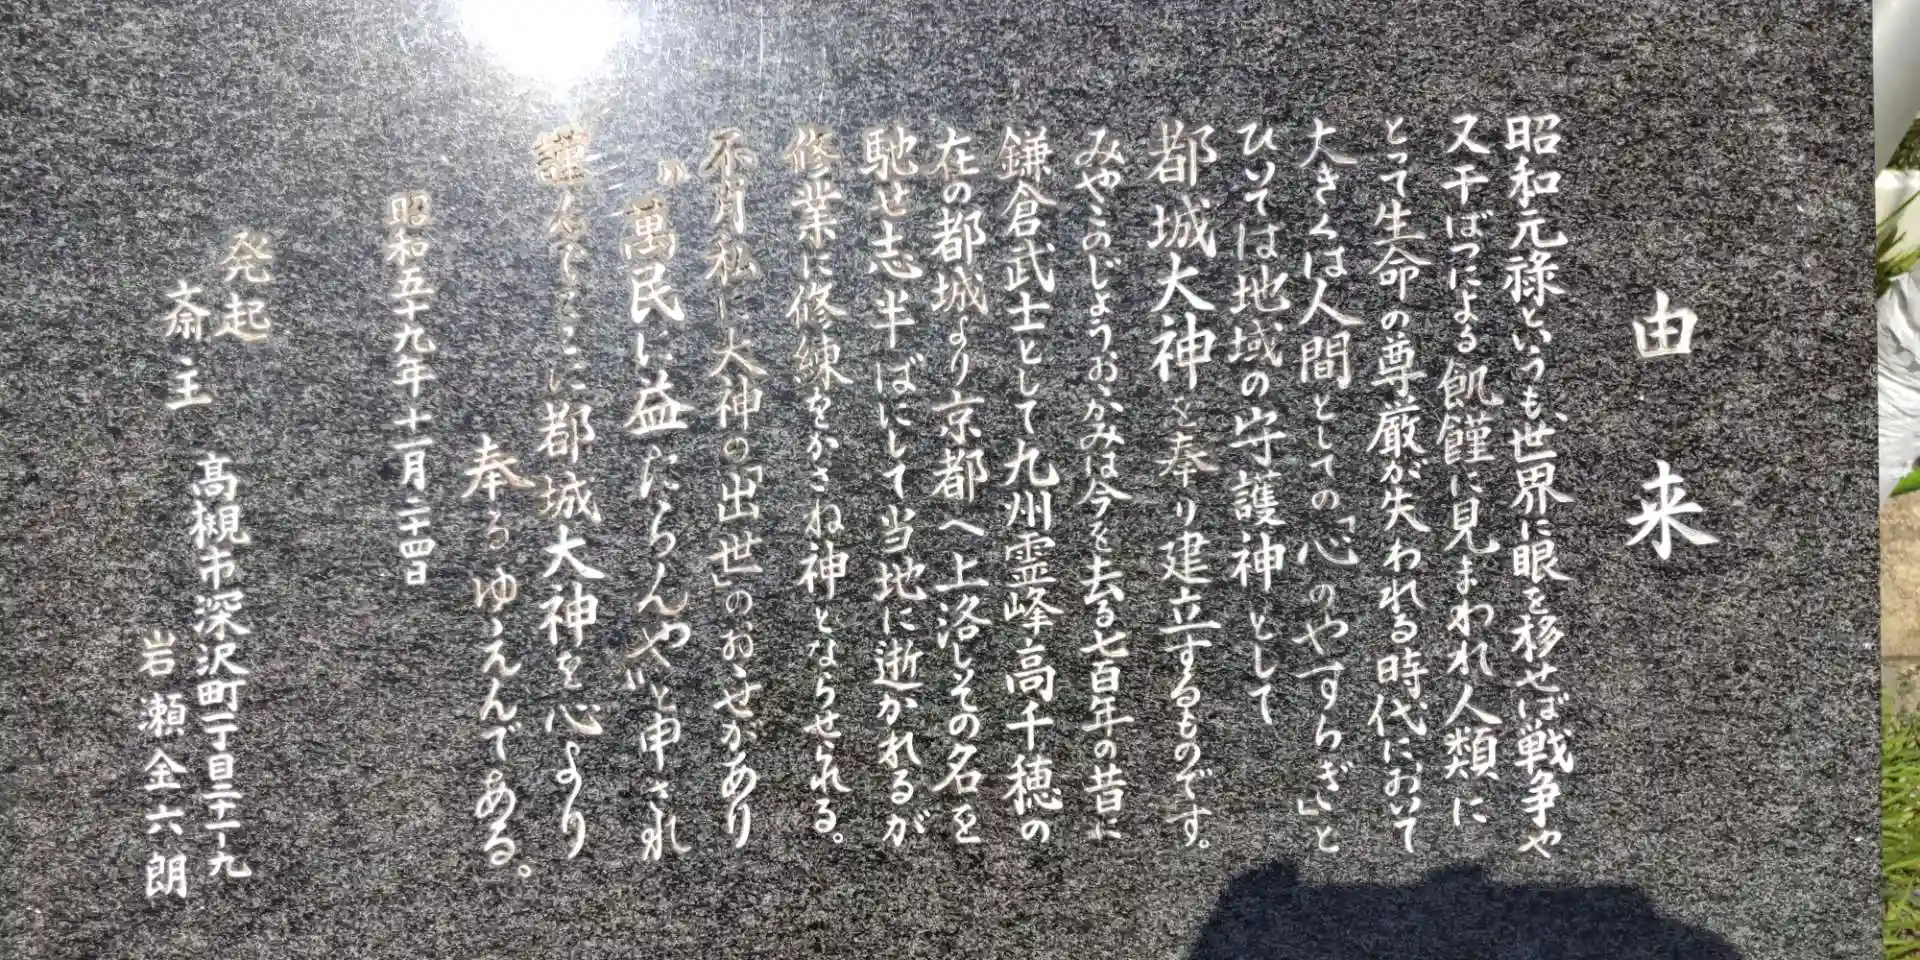 由来
昭和元禄というも、世界に眼を移せば戦争や
又干ばつによる飢饉に見まわれ人類に
とって生命の尊厳が失われる時代において
大きくは人間としての「心のやすらぎ」と
ひいては地域の守護神として
都城大神を奉り建立するものです。
みやこのじょうおゝかみは今を去る七百年の昔に
鎌倉武士として九州霊峰高千穂の
在の都城より京都へ上洛しその名を
馳せ志半ばにして当地に逝かれるが
修業に修練をかさね神とならせられる。
不肖私に大神の「出世」のおゝせがあり
〝萬民に益たらんや〟と申され
謹んでここに都城大神を心より
奉るゆゝえんである。
昭和五十九年十一月二十四日
発起
斎主
高槻市深沢町一丁目二十一ー九
岩瀬全六朗